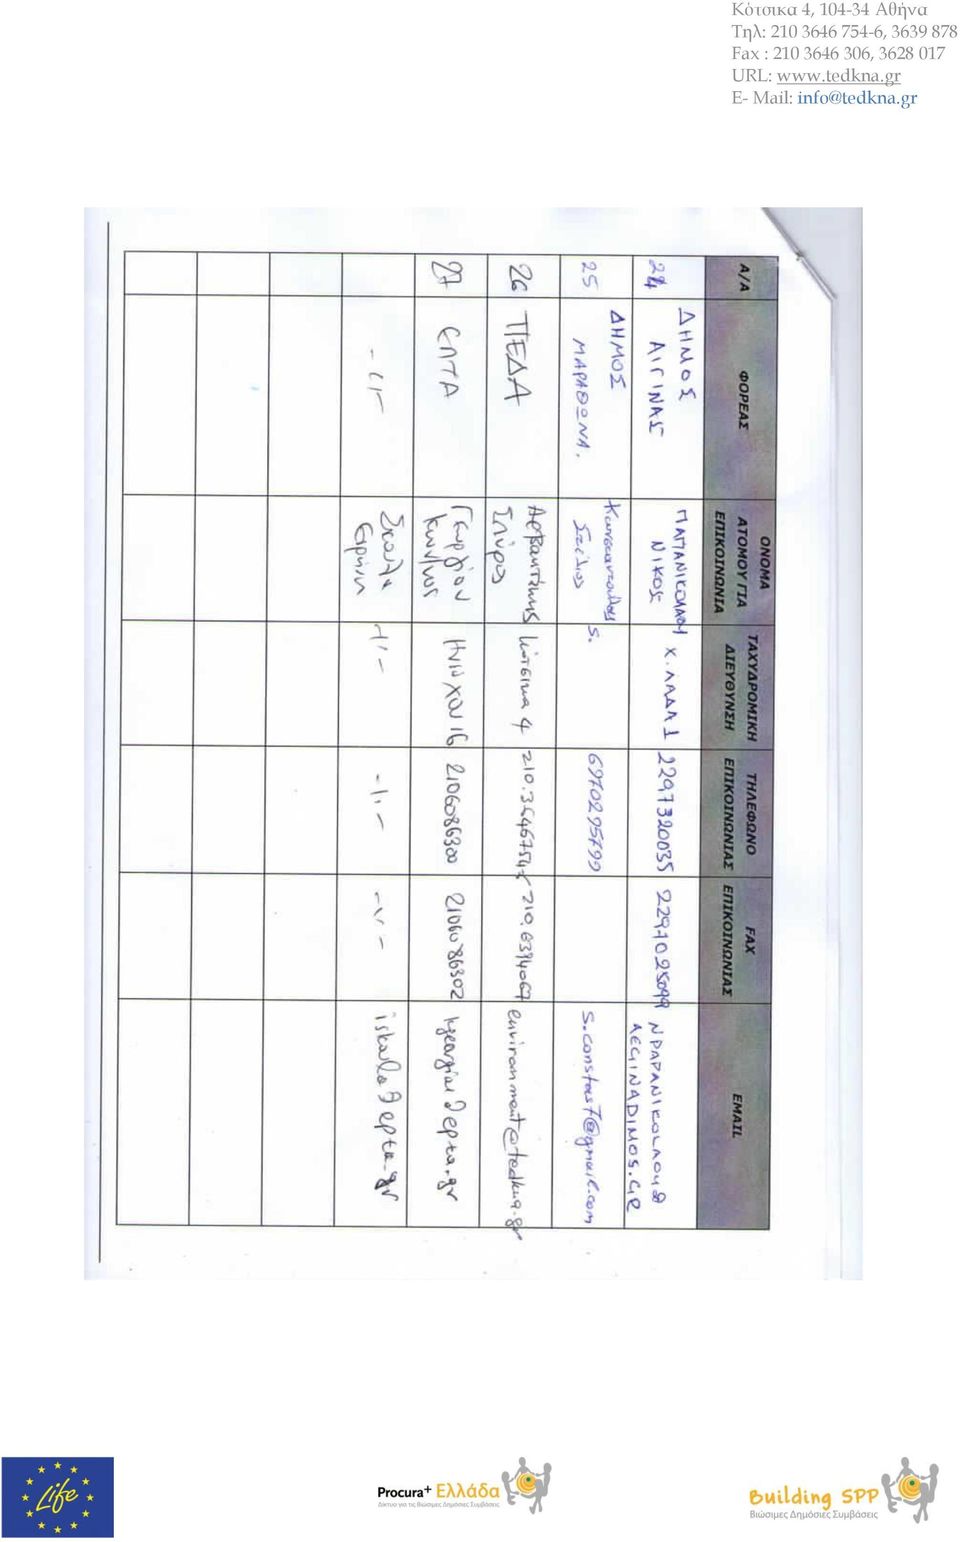 Κότσικα 4, 104-34 Αθήνα
Τηλ: 210 3646 754-6, 3639 878
Fax : 210 3646 306, 3628 017
URL: www.tedkna.gr
E- Mail: info@tedkna.gr
Α/Α ΦΟΡΕΑΣ ΟΝΟΜΑ ΑΤΟΜΟΥ ΓΙΑ ΕΠΙΚΟΙΝΩΝΙΑ ΤΑΧΥΔΡΟΜΙΚΗ ΔΙΕΥΘΥΝΣΗ ΤΗΛΕΦΩΝΟ ΕΠΙΚΟΙΝΩΝΙΑΣ FAX ΕΠΙΚΟΙΝΩΝΙΑΣ EMAIL
24 ΔΗΜΟΣ ΑΙΓΙΝΑΣ ΠΑΠΑΝΙΚΟΛΑΟΥ ΝΙΚΟΣ Χ. ΛΑΔΑ 1 2297320035 2297025099 NPAPANIKOLAOU@ AEGINADIMOS.GR
25 ΔΗΜΟΣ ΜΑΡΑΘΩΝΑ. Στέλιος S. 6970295799 s.constas7@gmail.com
26 ΠΕΔΑ Αρβανιτάκης Σπύρος Κότσικα 4 210.3646754 environment@tedkna.gr
27 ΕΠΤΑ Γεωργίου Κων/νος Ηνιόχου 16 2106086300 2106086302 kgeorgiou@epta.gr
-//- Σκούλα Ειρήνη -//- -//- -//- iskoula@epta.gr
Life
Procura+ Ελλάδα
Δίκτυο για τις Βιώσιμες Δημόσιες Συμβάσεις
Building SPP
Βιώσιμες Δημόσιες Συμβάσεις